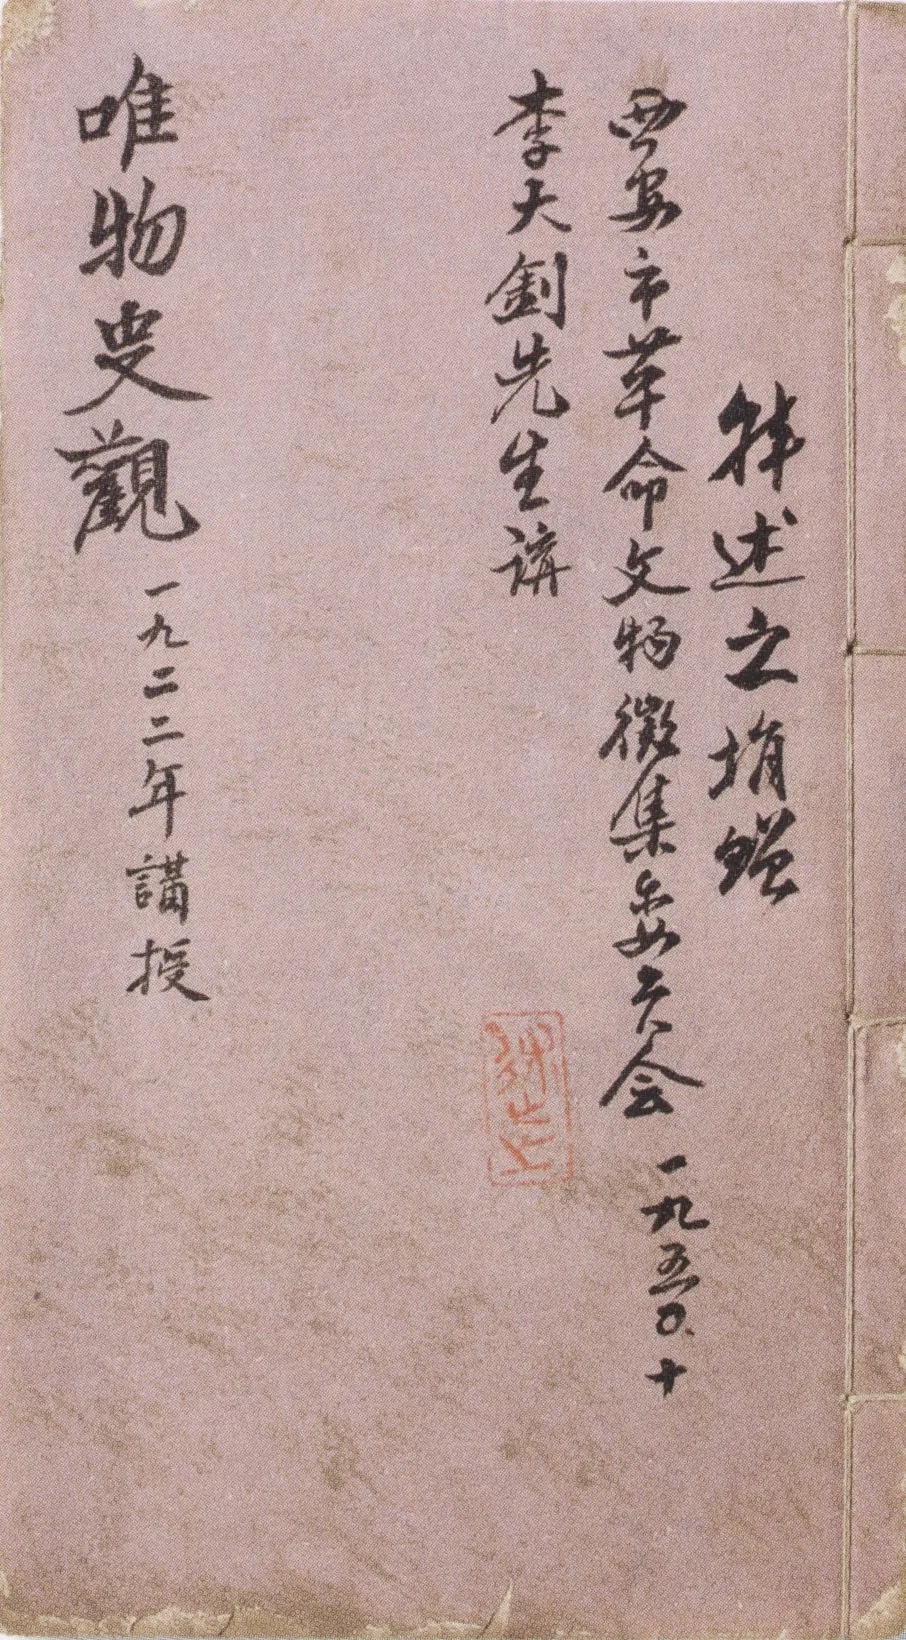 韩述之捐赠
西安市革命文物徵集委员会 一九五0.十
李大釗先生講
唯物史觀 一九二二年講授